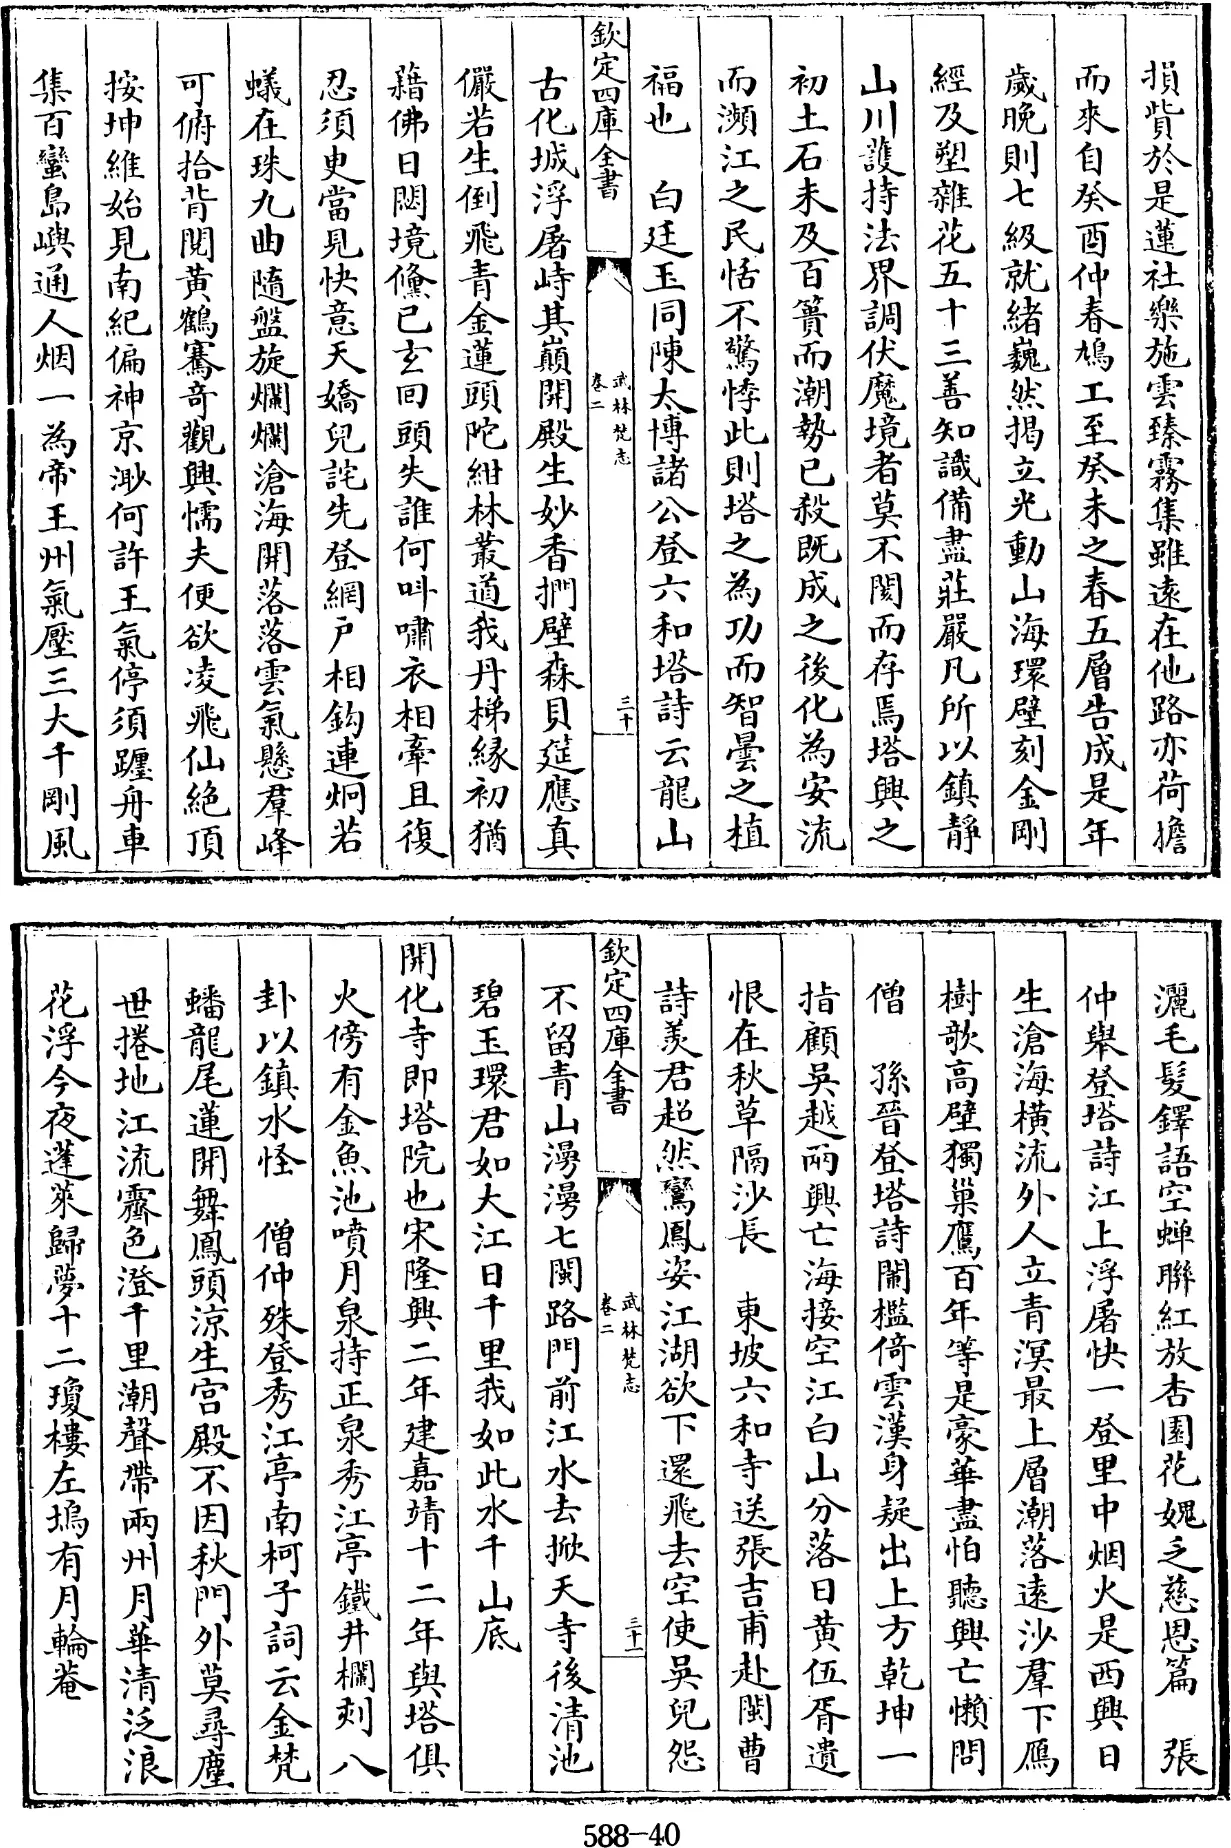 損貲於是蓮社樂施雲臻霧集雖遠在他路亦荷擔
而來自癸酉仲春鳩工至癸未之春五層告成是年
歲晚則七級就緒巍然揭立光動山海環壁刻金剛
經及塑雜花五十三善知識備盡莊嚴凡所以鎮靜
山川護持法界調伏魔境者莫不閡而存焉塔興之
初土石未及百簣而潮勢已殺既成之後化為安流
而瀕江之民恬不驚悸此則塔之為功而智曇之植
福也　白廷玉同陳太博諸公登六和塔詩云龍山
欽定四庫全書
武林梵志
卷二
三十
古化城浮屠峙其巔開殿生妙香捫壁森貝筵應真
儼若生倒飛青金蓮頭陀紺林叢道我丹梯緣初猶
藉佛日閟境儵已玄回頭失誰何叫嘯衣相牽且復
忍須臾當見快意天嬌兒詫先登網戶相鈎連炯若
蟻在珠九曲隨盤旋爛爛滄海開落落雲氣懸羣峰
可俯拾背閱黃鶴騫奇觀興懦夫便欲凌飛仙絶頂
按坤維始見南紀偏神京渺何許王氣停須躔舟車
集百蠻島嶼通人烟一為帝王州氣壓三大千剛風
灑毛髮鐸語空蟬聯紅放杏園花媿乏慈恩篇　張
仲舉登塔詩江上浮屠快一登里中烟火是西興日
生滄海橫流外人立青溟最上層潮落遠沙羣下鴈
樹歌高壁獨巢鷹百年等是豪華盡怕聽興亡懶問
僧　孫晉登塔詩闌檻倚雲漢身疑出上方乾坤一
指顧吳越兩興亡海接空江白山分落日黃伍胥遺
恨在秋草隔沙長　東坡六和寺送張吉甫赴閩曹
詩羨君超然鸞鳳姿江湖欲下還飛去空使吳兒怨
欽定四庫全書
武林梵志
卷二
三十一
不留青山漫漫七閩路門前江水去掀天寺後清池
碧玉環君如大江日千里我如此水千山底
開化寺即塔院也宋隆興二年建嘉靖十二年與塔俱
火傍有金魚池噴月泉持正泉秀江亭鐵井欄刻八
卦以鎮水怪　僧仲殊登秀江亭南柯子詞云金梵
蟠龍尾蓮開舞鳳頭涼生宮殿不因秋門外莫尋塵
世捲地江流霽色澄千里潮聲帶兩州月華清泛浪
花浮今夜蓬萊歸夢十二瓊樓左塢有月輪菴
588-40